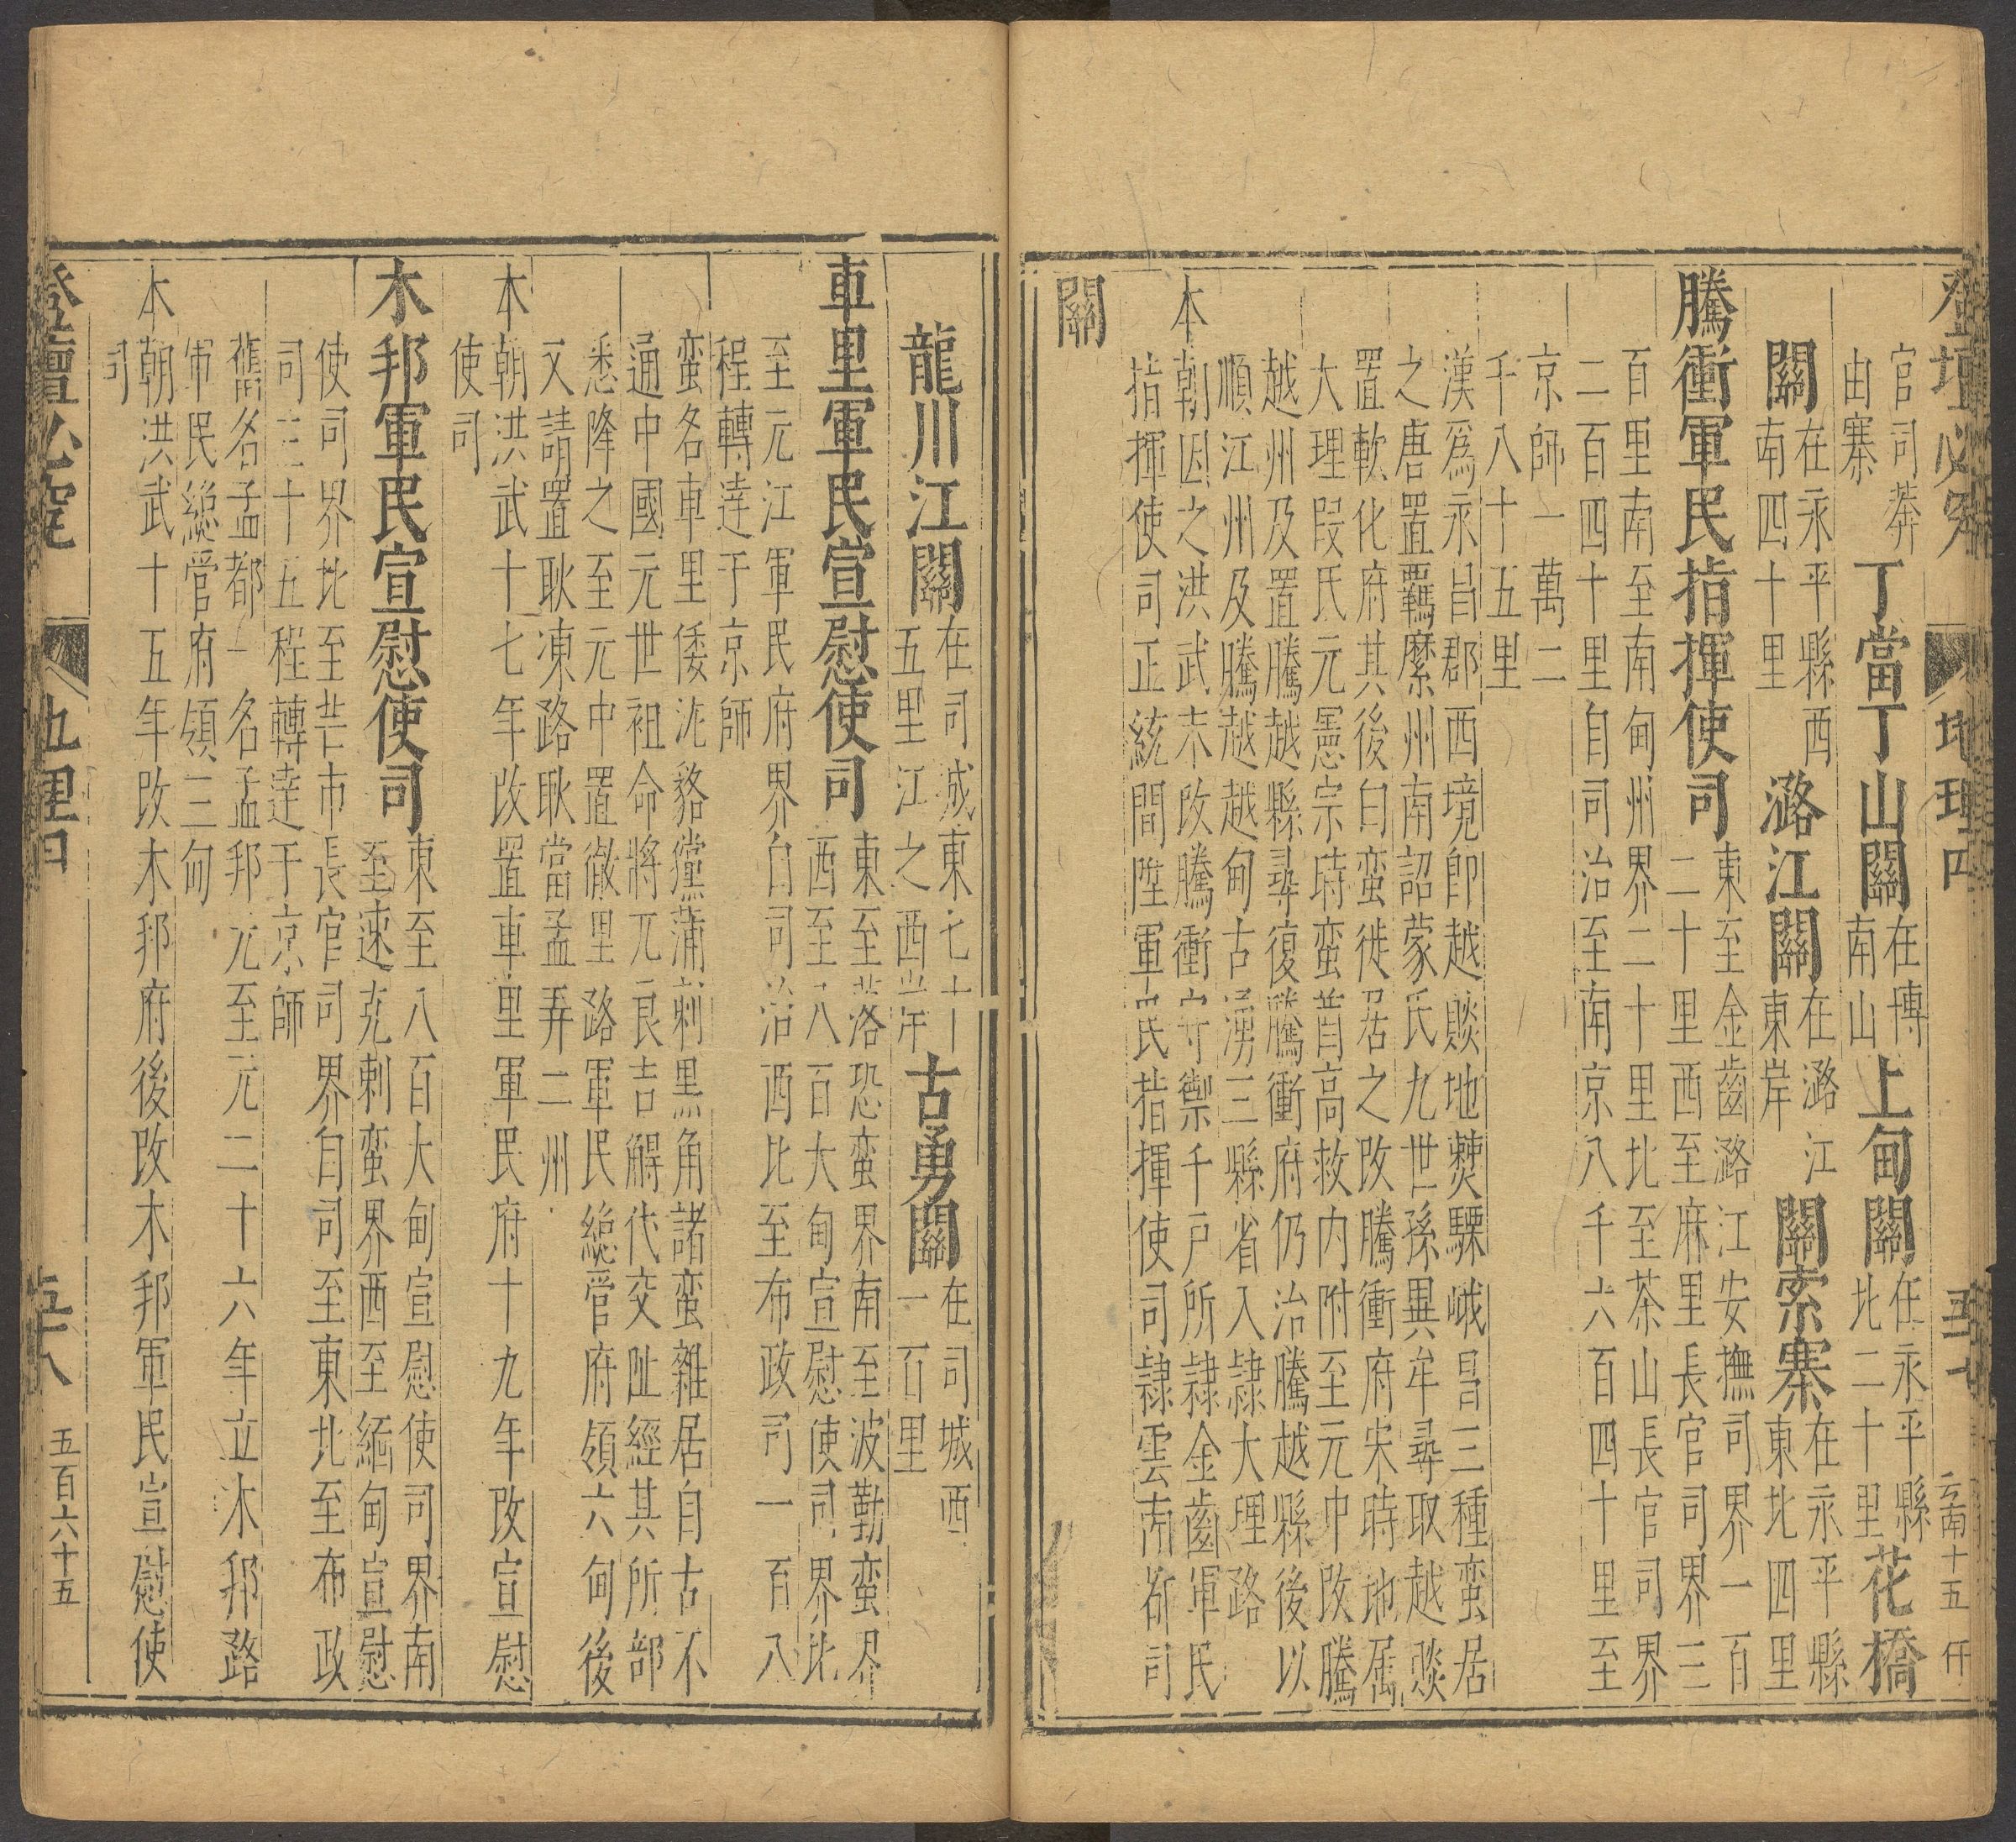 登壇必究 地理四 五十七 雲南十五 仟
官司莽
由寨 丁當丁山關 在博
南山 上甸關 在永平縣
北二十里 花橋
關 在永平縣西
南四十里 潞江關 在潞江
東岸 關索寨 在永平縣
東北四里
騰衝軍民指揮使司 東至金齒潞江安撫司界一百
二十里西至麻里長官司界三
百里南至南甸州界二十里北至茶山長官司界
二百四十里自司治至南京八千六百四十里至
京師一萬二
千八十五里
漢爲永昌郡西境卽越賧地僰驃峨昌三種蛮居
之唐置羈縻州南詔蒙氏九世孫異牟尋取越賧
置軟化府其後白蛮徙居之改騰衝府宋時地属
大理段氏元憲宗時蛮酋高救内附至元中改騰
越州及置騰越縣尋復騰衝府仍治騰越縣後以
順江州及騰越越甸古湧三縣省入隷大理路
本朝因之洪武末改騰衝守禦千戶所隷金齒軍民
指揮使司正統間陞軍民指揮使司隷雲南都司
關
龍川江關 在司城東七十
五里江之西岸 古勇關 在司城西
一百里
車里軍民宣慰使司 東至落恐蛮界南至波勒蛮界
西至八百大甸宣慰使司界北
至元江軍民府界自司治西北至布政司一百八
程轉逹于京師
蛮名車里倭泥貉獞蒲剌黑角諸蛮雜居自古不
通中國元世祖命將兀良吉觧代交趾經其所部
悉降之至元中置徹里路軍民總管府領六甸後
又請置耿凍路耿當孟弄二州
本朝洪武十七年改置車里軍民府十九年改宣慰
使司
木邦軍民宣慰使司 東至八百大甸宣慰使司界南
至速克剌蛮界西至緬甸宣慰
使司界北至芒市長官司界自司至東北至布政
司三十五程轉逹于京師
舊名孟都一名孟邦元至元二十六年立木邦路
軍民總管府領三甸
本朝洪武十五年改木邦府後改木邦軍民宣慰使
司
登壇必究 地理四 五十八 五百六十五